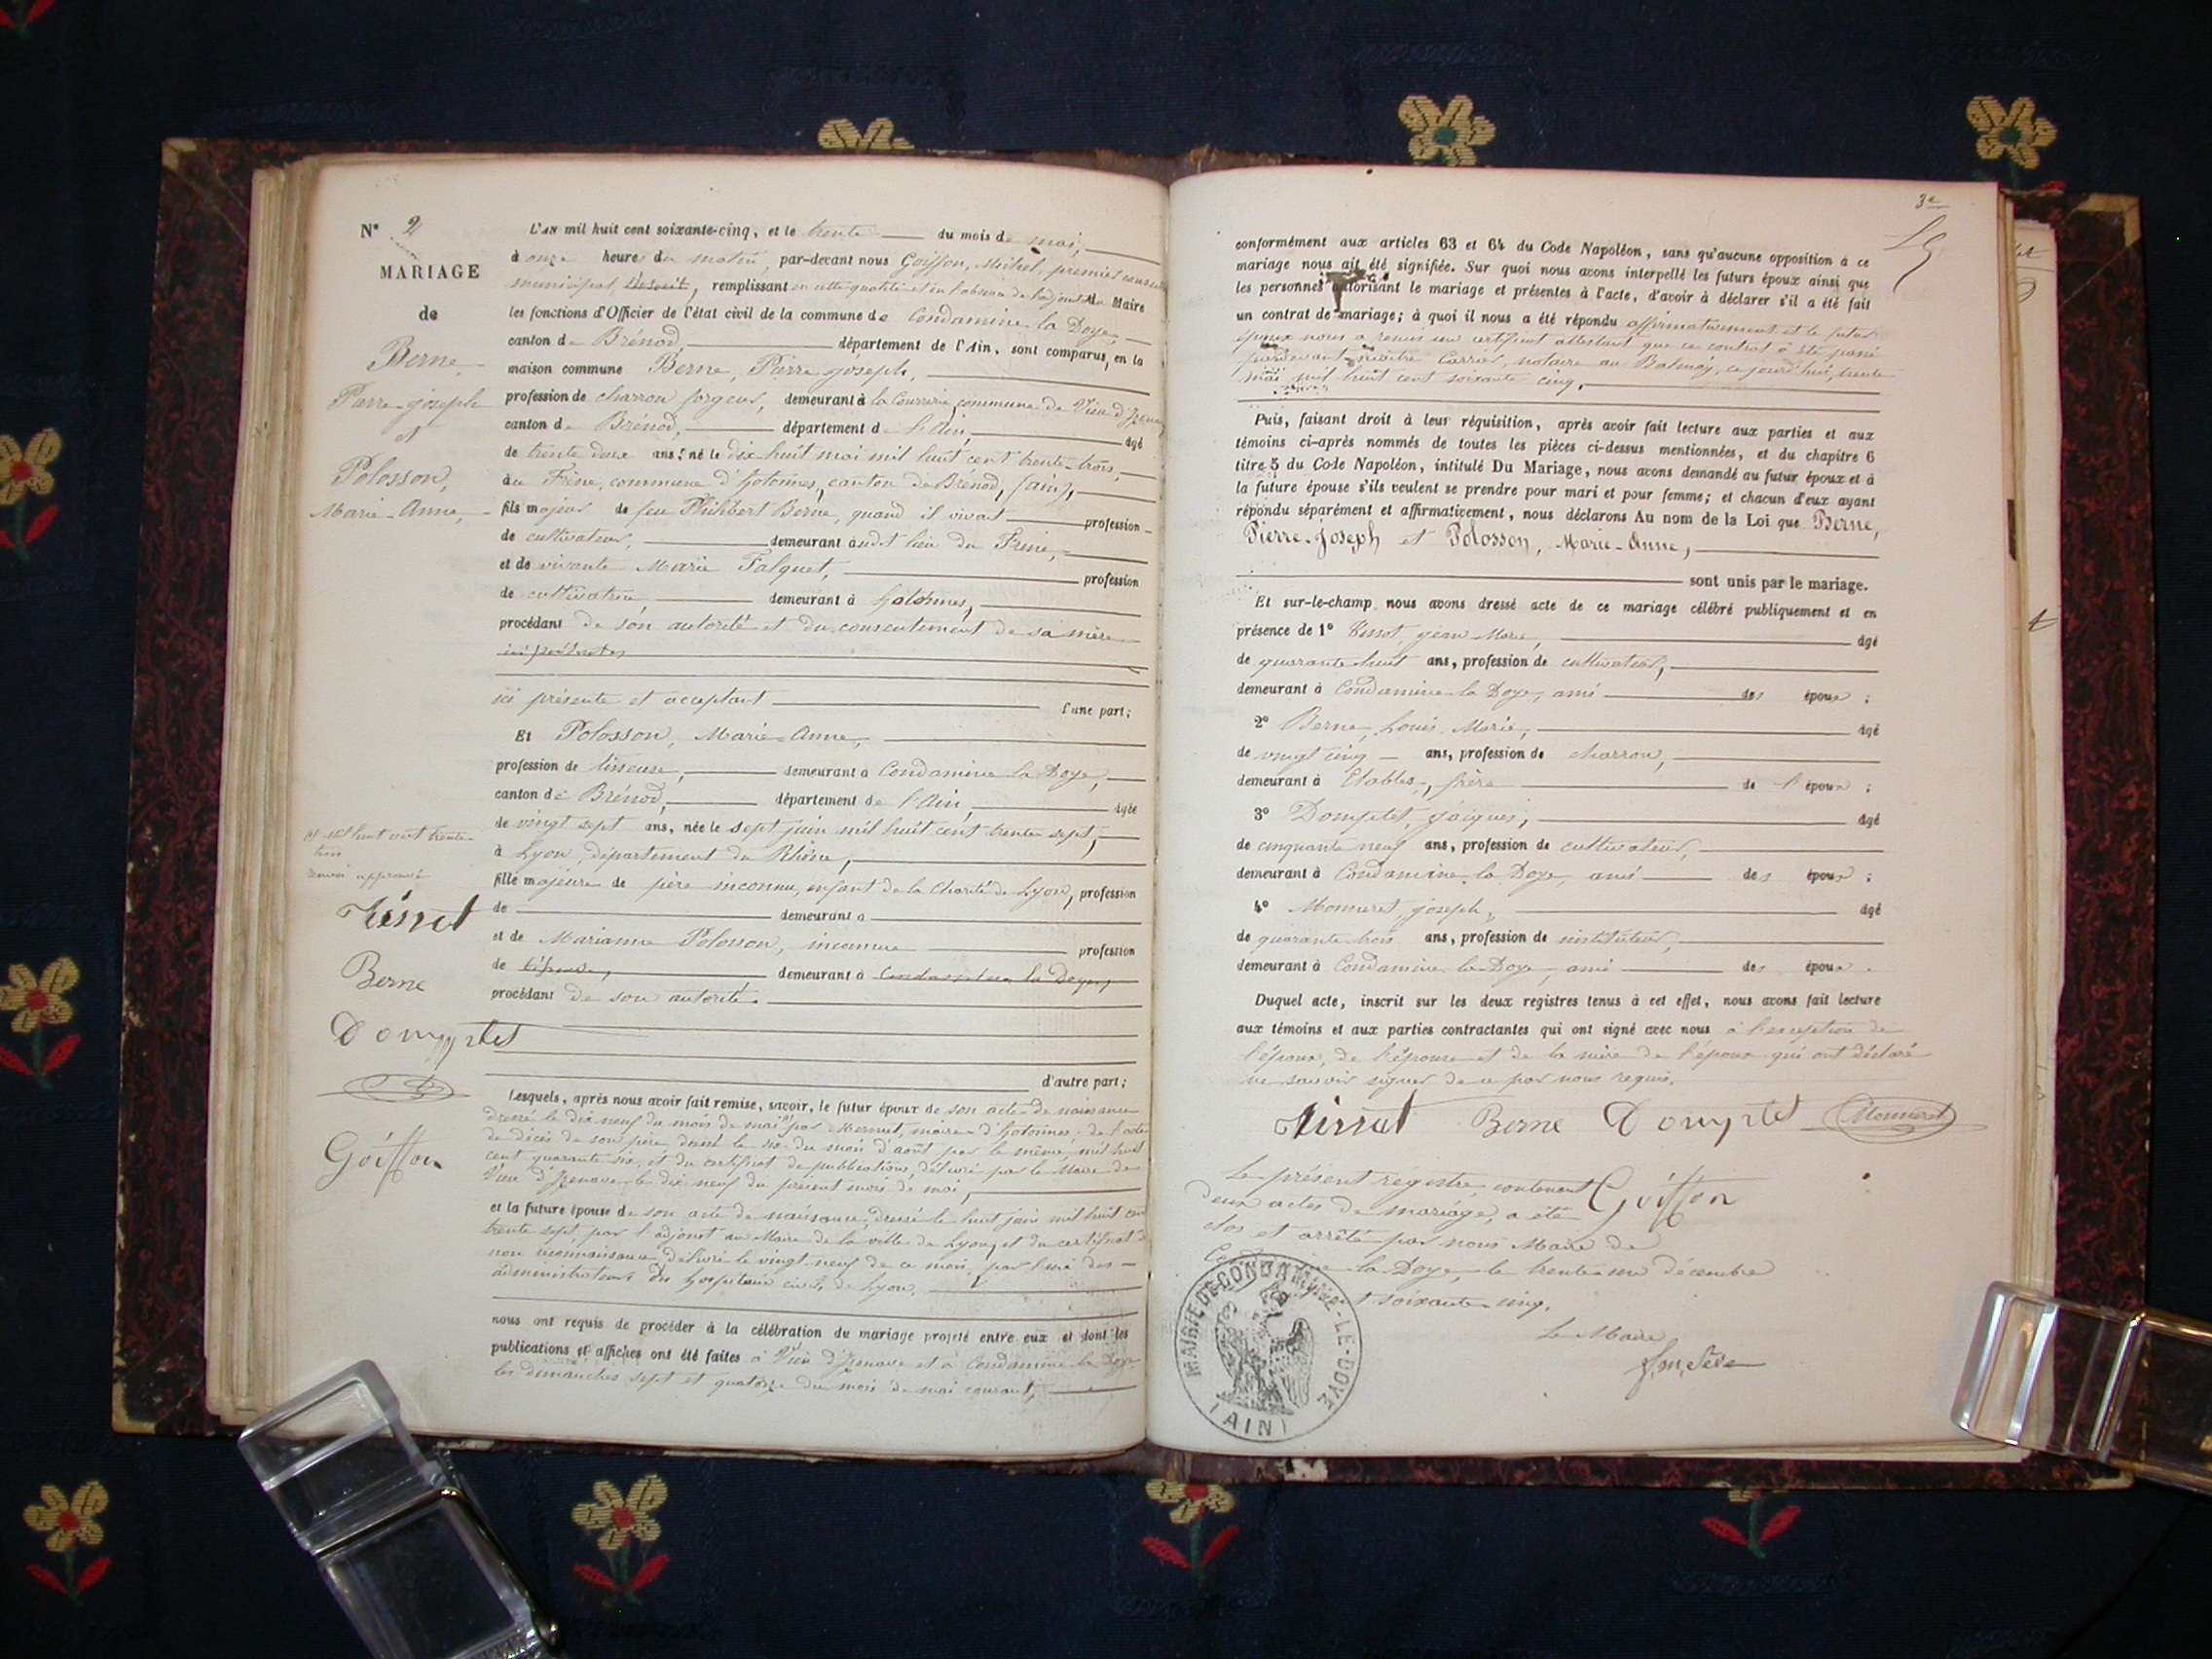 N° 2
MARIAGE
de
Berne,
Pierre-joseph
et
Polosson,
Marie-Anne,
mil huit cent trente-
trois
renvoi approuvé
Tissot
Berne
Domptet
Goiffon
L'AN mil huit cent soixante-cinq, et le trente du mois de mai,
à onze heures du matin, par-devant nous Goiffon, Michel, premier conseiller
municipal, remplissant en cette qualité et en l'absence de l'adjoint du Maire
les fonctions d'Officier de l'état civil de la commune de Condamine la Doye,
canton de Brénod, département de l'Ain, sont comparus, en la
maison commune Berne, Pierre joseph,
profession de charron forgeur, demeurant à la Courrerie, commune de Vieu d'Izenave
canton de Brénod, département de l'Ain, âgé
de trente deux ans, né le dix-huit mai mil huit cent trente-trois,
au Frêne, commune d'hotonnes, canton de Brénod, (ain),
fils majeur de feu Philibert Berne, quand il vivait profession
de cultivateur, demeurant audit lieu du Frêne,
et de vivante Marie Falquet, profession
de cultivatrice, demeurant à hotonnes,
procédant de son autorité et du consentement de sa mère
ici présente,
ici présente et acceptant d'une part;
Et Polosson, Marie-Anne,
profession de lisseuse, demeurant à Condamine la Doye,
canton de Brénod, département de l'Ain, âgée
de vingt sept ans, née le sept juin mil huit cent trente sept,
à Lyon, département du Rhône,
fille majeure de père inconnu, enfant de la Charité de Lyon, profession
de demeurant à
et de Marianne Polosson, inconnue profession
de demeurant à Condamine la Doye,
procédant de son autorité.
d'autre part;
Lesquels, après nous avoir fait remise, savoir, le futur époux de son acte de naissance
dressé le dix neuf du mois de mai par Mermet, maire d'hotonnes, de l'acte
de décès de son père, dressé le six du mois d'août par le même, mil huit
cent quarante six, et du certificat de publications, délivré par le Maire de
Vieu d'Izenave le dix neuf du présent mois de mai,
et la future épouse de son acte de naissance, dressé le huit juin mil huit cent
trente sept, par l'adjoint au Maire de la ville de Lyon, et du certificat de
non reconnaissance, délivré le vingt-neuf de ce mois, par l'un des
administrateurs des hospices civils de Lyon,
nous ont requis de procéder à la célébration du mariage projeté entre eux et dont les
publications et affiches ont été faites à Vieu d'Izenave et à Condamine la Doye
les dimanches sept et quatorze du mois de mai courant,
3e
conformément aux articles 63 et 64 du Code Napoléon, sans qu'aucune opposition à ce
mariage nous ait été signifiée. Sur quoi nous avons interpellé les futurs époux ainsi que
les personnes autorisant le mariage et présentes à l'acte, d'avoir à déclarer s'il a été fait
un contrat de mariage; à quoi il nous a été répondu affirmativement et le futur
époux nous a remis un certificat attestant que ce contrat a été passé
pardevant maître Carrier, notaire au Balmay, ce jourd'hui, trente
mai mil huit cent soixante cinq,
Puis, faisant droit à leur réquisition, après avoir fait lecture aux parties et aux
témoins ci-après nommés de toutes les pièces ci-dessus mentionnées, et du chapitre 6
titre 5 du Code Napoléon, intitulé Du Mariage, nous avons demandé au futur époux et à
la future épouse s'ils veulent se prendre pour mari et pour femme; et chacun d'eux ayant
répondu séparément et affirmativement, nous déclarons Au nom de la Loi que Berne,
Pierre-Joseph et Polosson, Marie-Anne,
sont unis par le mariage.
Et sur-le-champ nous avons dressé acte de ce mariage célébré publiquement et en
présence de 1° Tissot, jean Marie, âgé
de quarante huit ans, profession de cultivateur,
demeurant à Condamine la Doye, ami des époux ;
2° Berne, Louis Marie, âgé
de vingt cinq ans, profession de charron,
demeurant à Etables, frère de l'époux ;
3° Domptet, jâques, âgé
de cinquante neuf ans, profession de cultivateur,
demeurant à Condamine la Doye, ami des époux ;
4° Monneret, joseph, âgé
de quarante trois ans, profession de instituteur,
demeurant à Condamine la Doye, ami des époux.
Duquel acte, inscrit sur les deux registres tenus à cet effet, nous avons fait lecture
aux témoins et aux parties contractantes qui ont signé avec nous à l'exception de
l'époux, de l'épouse et de la mère de l'époux qui ont déclaré
ne savoir signer de ce par nous requis.
Tissot Berne Domptet Monneret
Le présent registre contenant Goiffon
deux actes de mariage, a été
clos et arrêté par nous Maire de
la Doye, le trente un décembre
soixante cinq.
Le Maire
MAIRIE DE CONDAMINE-LE-DOYE
(AIN)